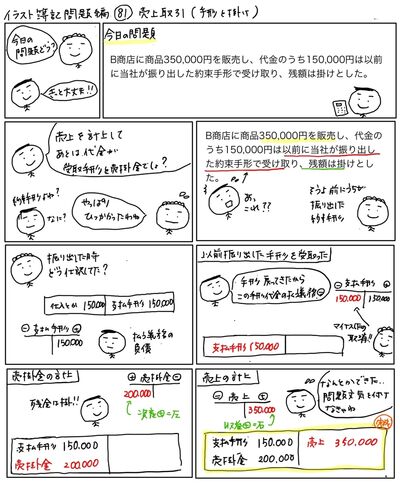 イラスト簿記問題編 81 売上取引(手形と掛け)
今日の
問題どう?
きっと大丈夫!!
今日の問題
B商店に商品350,000円を販売し、代金のうち150,000円は以前
に当社が振り出した約束手形で受け取り、残額は掛けとした。
売上を計上して
あとは代金が
受取手形と売掛金でしょ?
約束手形よね?
なに?
やっぱり
ひっかかったわね
B商店に商品350,000円を販売し、代金の
うち150,000円は以前に当社が振り出し
た約束手形で受け取り、残額は掛けとし
た。
あっ
これ??
そうよ前にうちが
振り出した
約束手形
振り出した時
どう仕訳してた?
仕入とか 150,000 支払手形 150,000
⊖ 支払手形 ⊕
150,000
払う義務の
負債
以前振り出した手形を受取った
手形戻ってきたから
この手形代金の払う義務⊖
⊖ 支払手形 ⊕
150,000 150,000
マイナスだから
取消!!
支払手形 150,000
売掛金の計上
残金は掛!!
⊕ 売掛金 ⊖
200,000
資産⊕=左
支払手形 150,000
売掛金 200,000
売上の計上
⊖ 売上 ⊕
350,000
収益⊕=右
なんとかできた…
問題文気を付け
なきゃね
支払手形 150,000 売上 350,000
売掛金 200,000